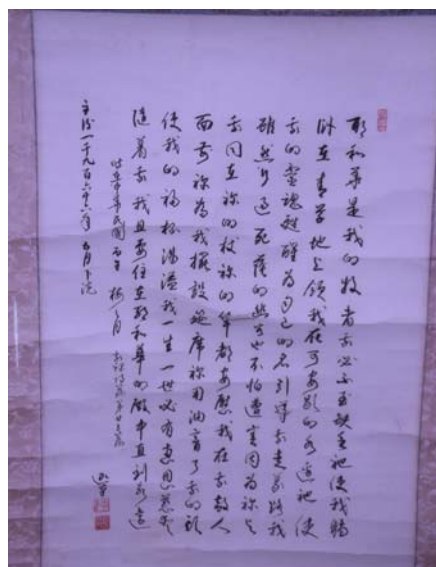 耶和華是我的牧者我必不至缺乏祂使我躺
臥在青草地上領我在可安歇的水邊祂使
我的靈魂甦醒為自己的名引導我走義路我
雖然行過死蔭的幽谷也不怕遭害因為祢與
我同在祢的杖祢的竿都安慰我在我敵人
面前祢為我擺設筵席祢用油膏了我的頭
使我的福杯滿溢我一生一世必有惠恩慈愛
隨著我我且要住在耶和華的殿中直到永遠
時在中華民國丙午梅月 詩篇第廿三篇
主後一千九百六十六年五月下浣